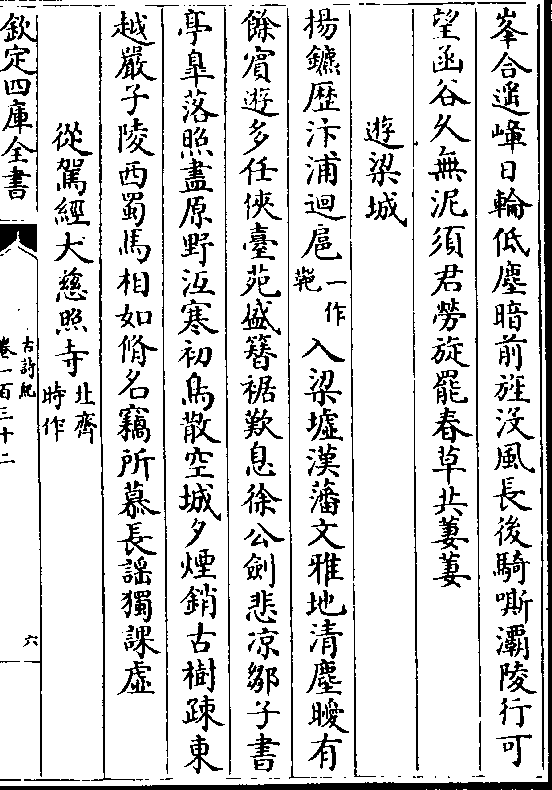 峯合遥嶂日輪低塵暗前旌没風長後騎嘶灞陵行可
望函谷久無泥須君勞旋罷春草共萋萋
遊梁城
揚鑣歴汴浦迴扈一作䡝入梁墟漢藩文雅地清塵曖有
餘賔遊多任俠臺苑盛簪裾歎息徐公劍悲凉鄒子書
亭臯落照盡原野沍寒初鳥散空城夕煙銷古樹疎東
越嚴子陵西蜀馬相如脩名竊所慕長謡獨課虚
從駕經大慈照寺北齊時作
欽定四庫全書
古詩紀
卷一百三十二
六